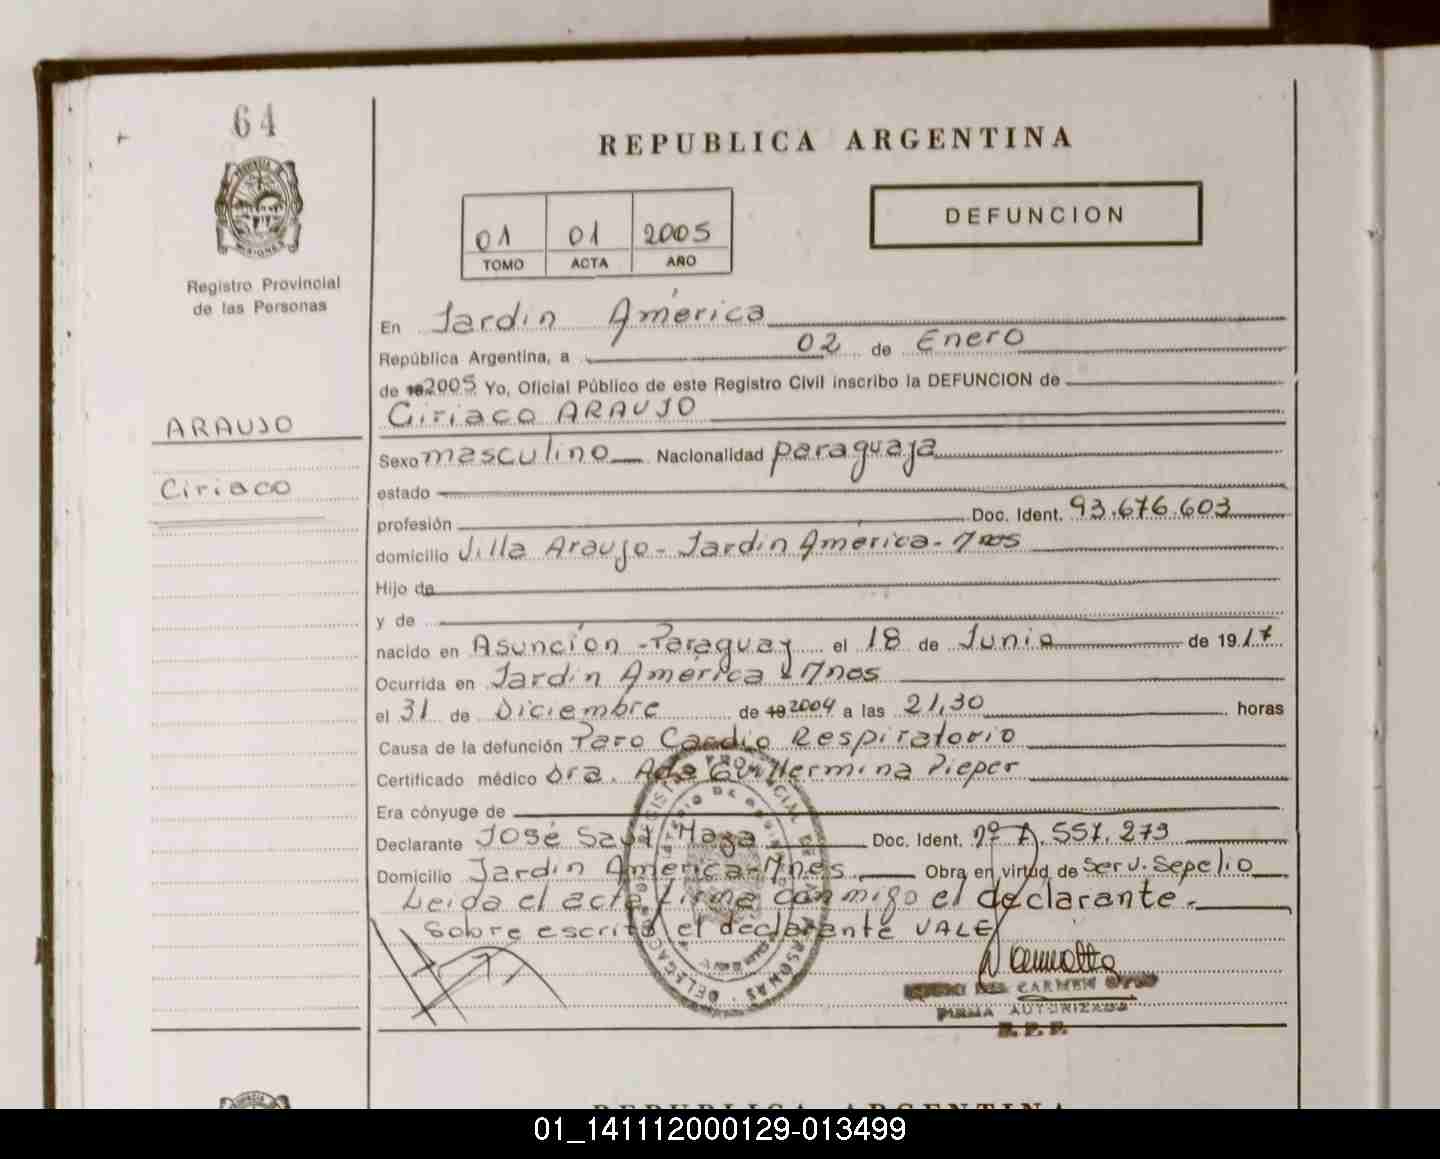 64
REPUBLICA ARGENTINA
01 01 2005
TOMO ACTA AÑO
DEFUNCION
Registro Provincial
de las Personas
ARAUJO
Ciriaco
En Jardin América
República Argentina, a 02 de Enero
de 19 2005 Yo, Oficial Público de este Registro Civil inscribo la DEFUNCION de
Ciriaco ARAUJO
Sexo masculino Nacionalidad paraguaja
estado
profesión Doc. Ident. 93.676.603
domicilio Villa Araujo - Jardin América - Mnes
Hijo de
y de
nacido en Asunción - Paraguay el 18 de Junio de 1917
Ocurrida en Jardin América - Mnes
el 31 de Diciembre de 19 2004 a las 21,30 horas
Causa de la defunción Paro Cardio Respiratorio
Certificado médico Dra. Ada Guillermina Pieper
Era cónyuge de
Declarante José Saul Maza Doc. Ident. nº 7.557.273
Domicilio Jardin América - Mnes. Obra en virtud de Serv. Sepelio
Leida el acta firma conmigo el declarante.
Sobre escrito el declarante VALE
DEL CARMEN
FIRMA AUTORIZADA
REPUBLICA ARGENTINA
01_141112000129-013499